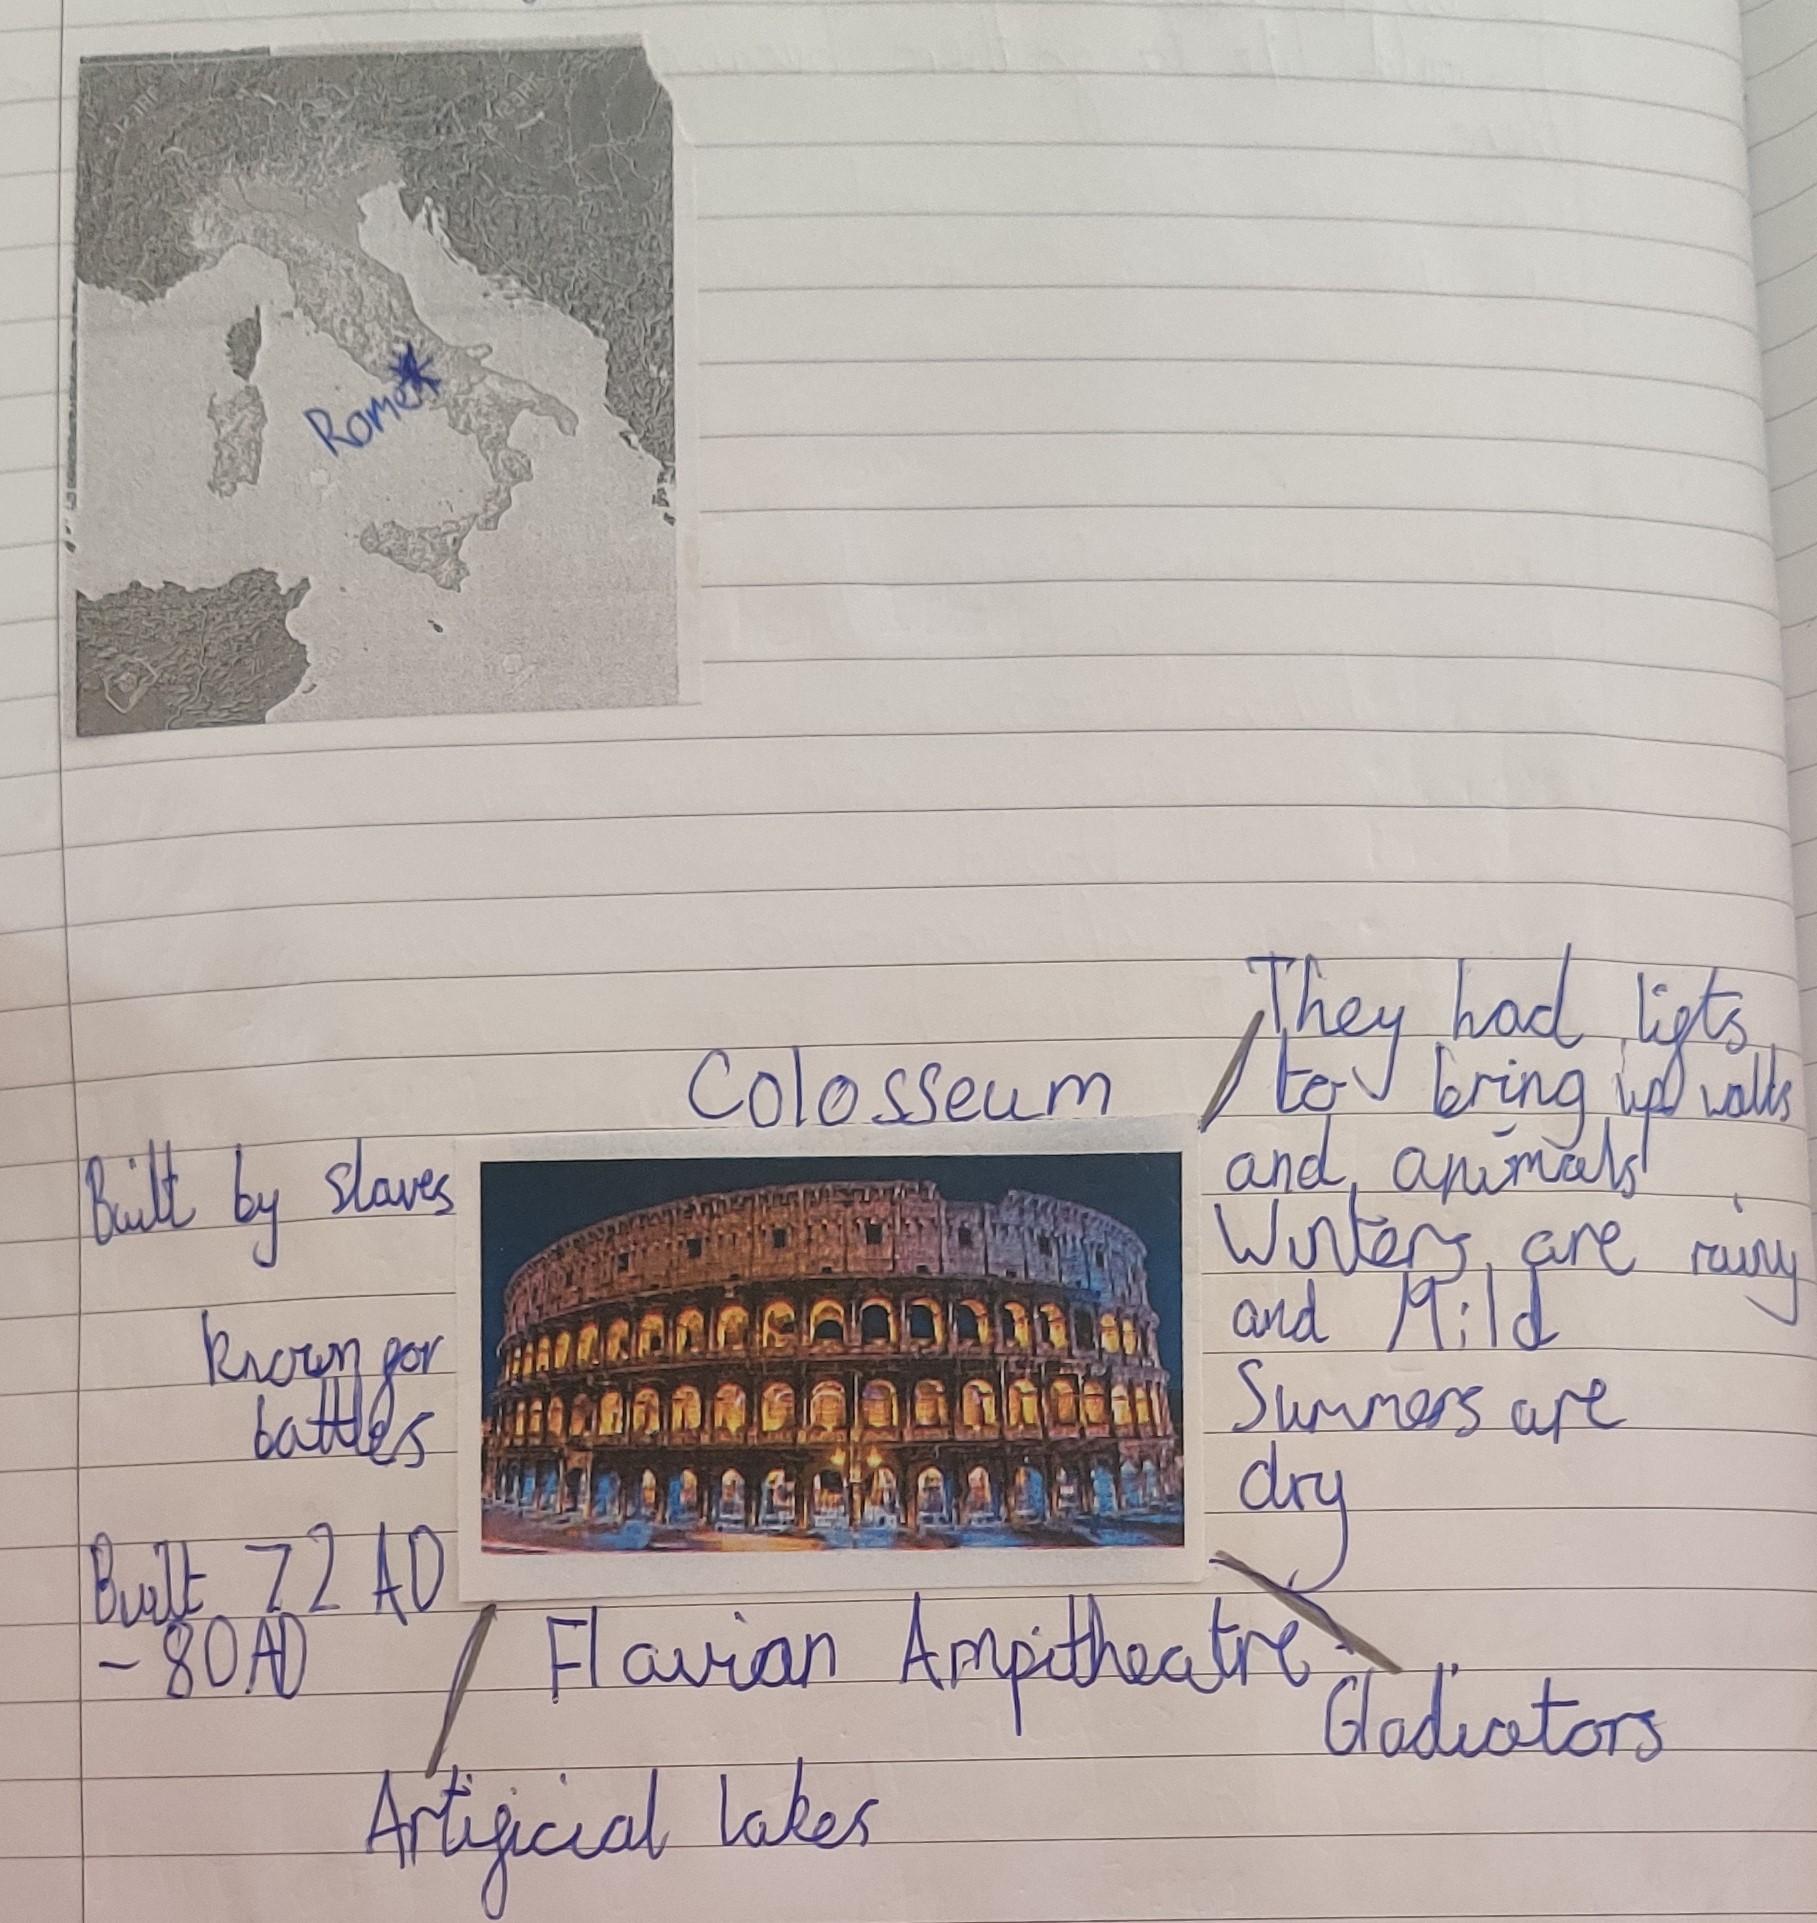 Rome
Colosseum
They had lifts
to bring up walls
and animals
Winters are rainy
and Mild
Summers are
dry
Built by slaves
known for
battles
Built 72 AD
- 80AD
Flavian Ampitheatre
Gladiators
Artificial lakes